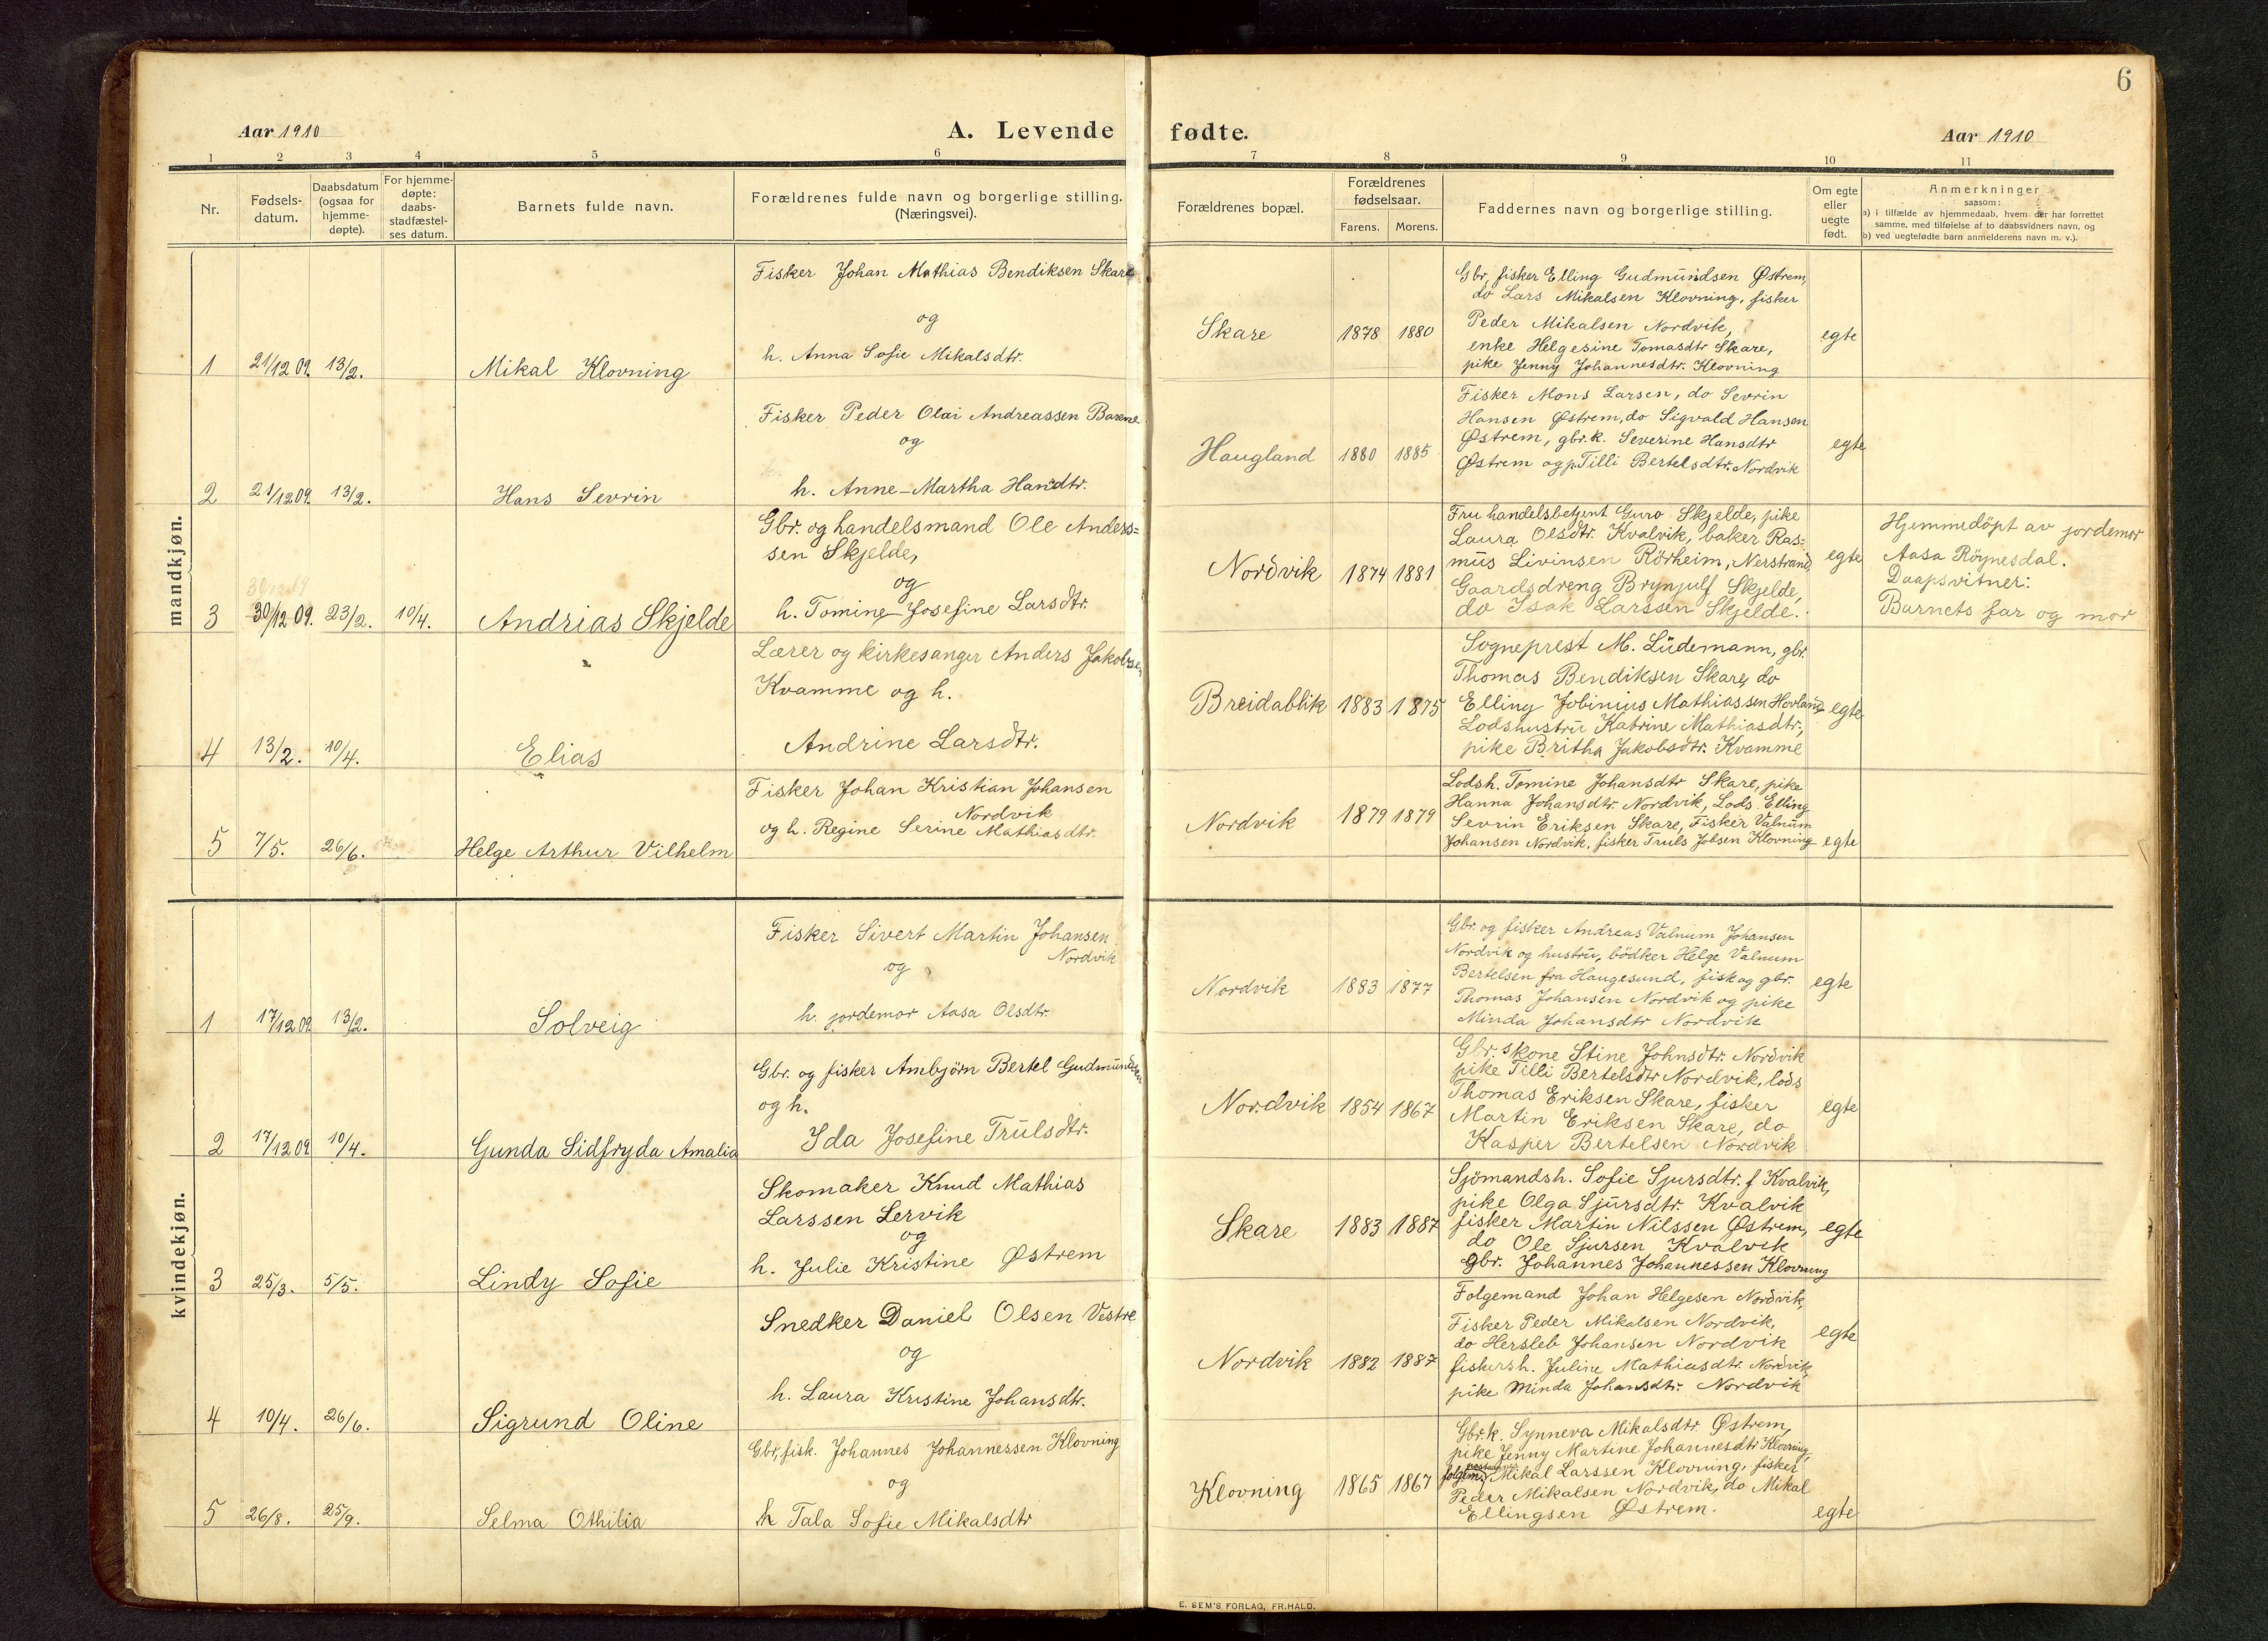 6
Aar 1910
A. Levende fødte.
Aar 1910
1 2 3 4 5 6 7 8 9 10 11
Nr.
Fødsels-
datum.
Daabsdatum
(ogsaa for
hjemme-
døpte).
For hjemme-
døpte:
daabs-
stadfæstel-
ses datum.
Barnets fulde navn.
Forældrenes fulde navn og borgerlige stilling.
(Næringsvei).
Forældrenes bopæl.
Forældrenes
fødselsaar.
Farens. Morens.
Faddernes navn og borgerlige stilling.
Om egte
eller
uegte
født.
Anmerkninger
saasom:
a) i tilfælde av hjemmedaab, hvem der har forrettet
samme, med tilføielse af to daabsvidners navn, og
b) ved uegtefødte barn anmelderens navn m. v.).
mandkjøn.
1 21/12 09. 13/2. Mikal Klovning
Fisker Johan Mathias Bendiksen Skare
og
h. Anna Sofie Mikalsdtr.
Skare 1878 1880
Gbr, fisker Elling Gudmundsen Østrem,
do Lars Mikalsen Klovning, fisker
Peder Mikalsen Nordvik,
enke Helgesine Tomasdtr Skare,
pike Jenny Johannesdtr. Klovning
egte
2 21/12 09. 13/2. Hans Sevrin
Fisker Peder Olai Andreassen
og
h. Anne-Martha Handtr.
Haugland 1880 1885
Fisker Mons Larsen, do Sevrin
Hansen Østrem, do Sigvald Hansen
Østrem, gbr.k. Severine Hansdtr
Østrem og p. Tilli Bertelsdtr. Nordvik
egte
3 30/12 09. 23/2. 10/4. Andrias Skjelde
Gbr. og handelsmand Ole Anders=
sen Skjelde,
og
h. Tomine-Josefine Larsdtr.
Nordvik 1874 1881
Fru handelsbetjent Guro Skjelde, pike
Laura Olsdtr. Kvalvik, baker Ras=
mus Livinsen Rörheim, Nerstrand,
Gaardsdreng Brynjulf Skjelde,
do Isak Larssen Skjelde.
egte
Hjemmedöpt av jordemor
Aasa Röynesdal.
Daapsvitner:
Barnets far og mor
4 13/2. 10/4. Elias
Lærer og kirkesanger Anders Jakobsen
Kvamme og h.
Andrine Larsdtr.
Breidablik 1883 1875
Sogneprest M. Lüdemann, gbr.
Thomas Bendiksen Skare, do
Elling Jobinius Mathiassen Hovland,
Lodshustru Katrine Mathiasdtr,
pike Britha Jakobsdtr. Kvamme
egte
5 7/5. 26/6. Helge Arthur Vilhelm
Fisker Johan Kristian Johansen
Nordvik
og h. Regine Serine Mathiasdtr.
Nordvik 1879 1879
Lodsh. Tomine Johansdtr Skare, pike
Hanna Johansdtr. Nordvik, Lods. Elling
Sevrin Eriksen Skare, Fisker Valnum
Johansen Nordvik, fisker Truls Jobsen Klovning
egte
kvindekjøn.
1 17/12 09. 13/2. Solveig
Fisker Sivert Martin Johansen
Nordvik
og
h. jordemor Aasa Olsdtr.
Nordvik 1883 1877
Gbr. og fisker Andreas Valnum Johansen
Nordvik og hustru, bödker Helge Valnum
Bertelsen fra Haugesund, fisk og gbr.
Thomas Johansen Nordvik og pike
Minda Johansdtr Nordvik
egte
2 17/12 09 10/4. Gunda Sidfryda Amalia
Gbr. og fisker Ambjörn Bertel Gudmundsen
og h.
Ida Josefine Trulsdtr.
Nordvik 1854 1867
Gbr. skone Stine Johnsdtr. Nordvik
pike Tilli Bertelsdtr Nordvik, lods
Thomas Eriksen Skare, fisker
Martin Eriksen Skare, do
Kasper Bertelsen Nordvik
egte
3 25/3. 5/5. Lindy Sofie
Skomaker Knud Mathias
Larssen Lervik
og
h. Julie Kristine Østrem
Skare 1883 1887
Sjömandsh. Sofie Sjursdtr. f Kvalvik,
pike Olga Sjursdtr. Kvalvik
fisker Martin Nilssen Østrem,
do Ole Sjursen Kvalvik
gbr. Johannes Johannessen Klovning
egte
4 10/4. 26/6. Sigrund Oline
Snedker Daniel Olsen Vestre
og
h. Laura Kristine Johansdtr.
Nordvik 1882 1887
Folgemand Johan Helgesen Nordvik,
Fisker Peder Mikalsen Nordvik,
do Hersleb Johansen Nordvik
fiskersh. Juline Mathiasdtr. Nordvik,
pike Minda Johansdtr. Nordvik
egte
5 26/8. 25/9. Selma Othilia
Gbr, fisk. Johannes Johannessen Klovning
og
h Tala Sofie Mikalsdtr
Klovning 1865 1867
Gbr.k. Synneva Mikalsdtr. Østrem,
pike Jenny Martine Johannesdtr Klovning,
folgem. Mikal Larssen Klovning, fisker
Peder Mikalsen Nordvik, do Mikal
Ellingsen Østrem.
egte
E. SEM'S FORLAG, FR.HALD.